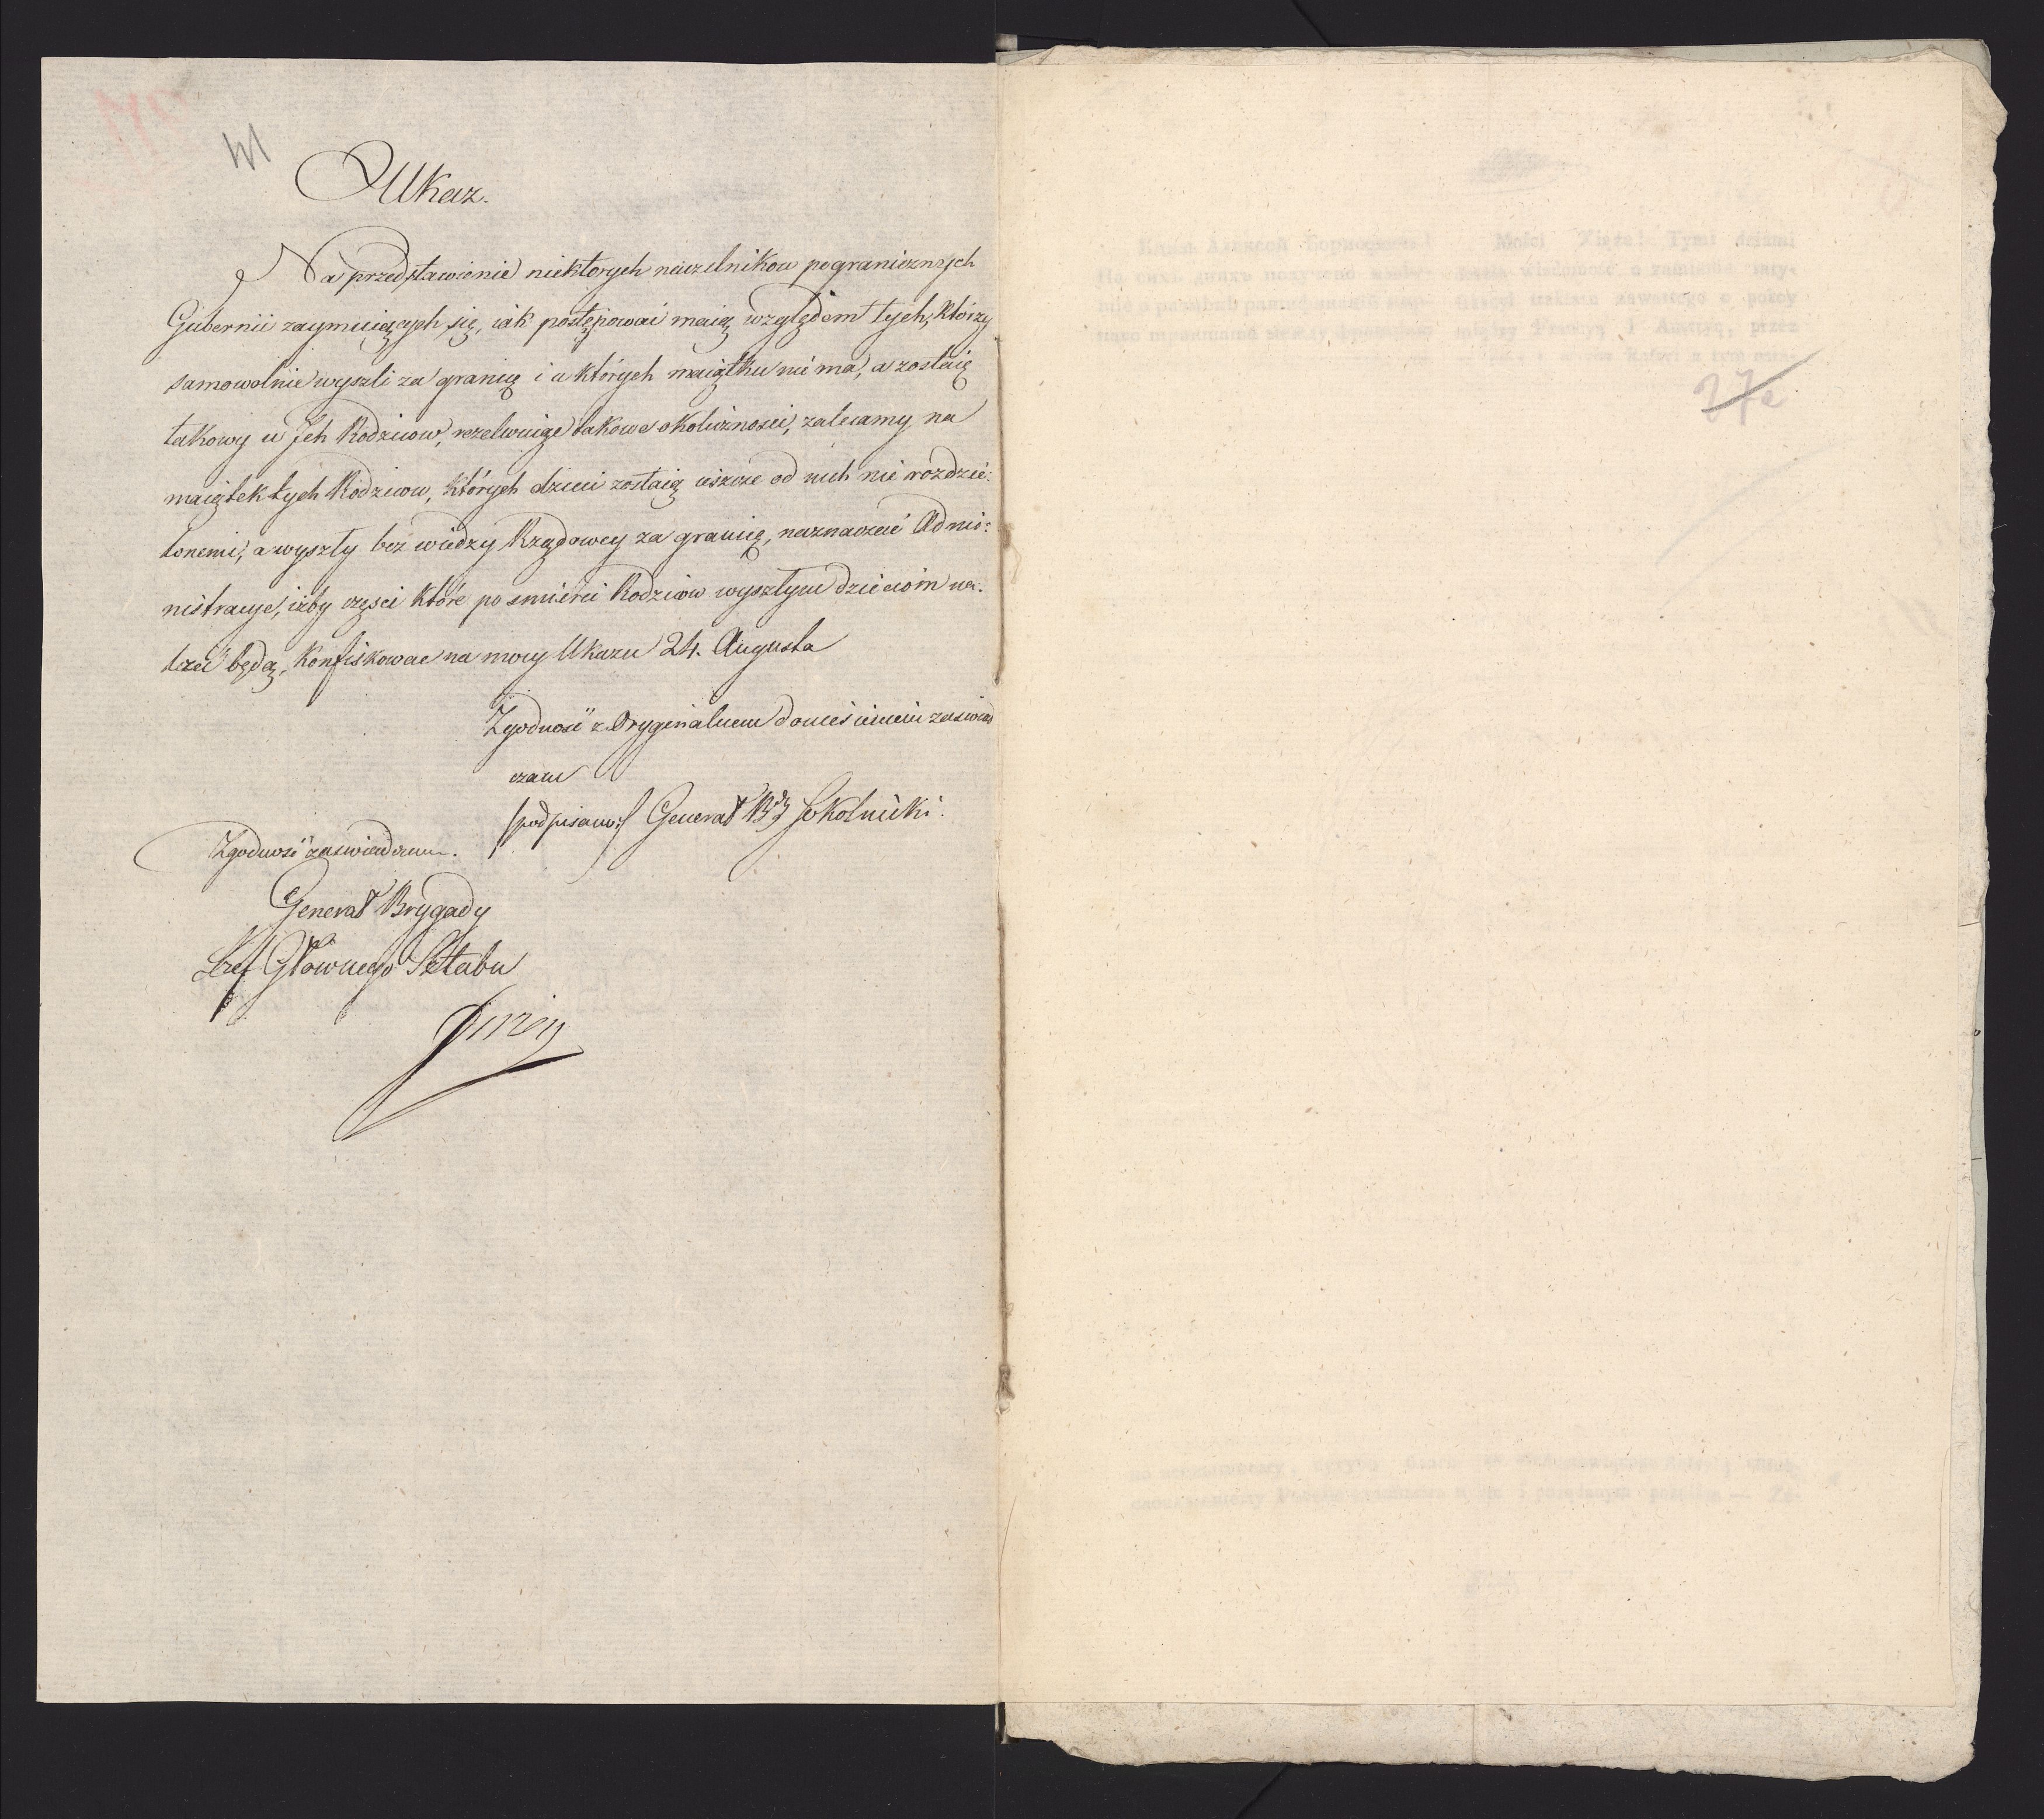 Ukaz.
Na przedstawienie niektorych naczelnikow pogranicznych
Gubernii zaymuiących się, iak postępowai maią względem tych, którzy
samowolnie wyszli za granię i u których maiątku nie ma, a zostaię
takowy u Jch Rodzicow, rezolwuiąc takowe okoliczności, zalecamy na
maiątek tych Rodzicow, których dzieci zostaią ieszcze od nich nie rozdzie:
lonemi, a wyszły bez wiedzy Rządowey za granicę, naznaczać Admi:
nistracye, iżby częsci które po smierci Rodziców wyszłym dzieciom na:
leżeć będą, Konfiskowac na mocy Ukazu 24. Augusta
Zgodność z Oryginalnem doniesieniem zaswiad
czam
/podpisano:/ Generał Bdy Sokolnicki.
Zgodność zaswiadczam.
Generał Brygady
Szef Głownego Sztabu
27a
Mości Xiąże! Tymi dniami